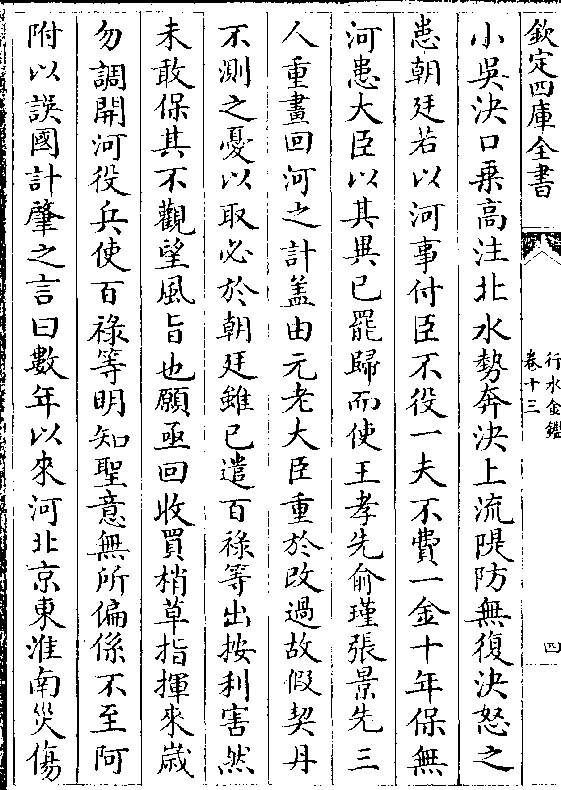 欽定四庫全書
行水金鑑
卷十三
四
小吳決口乗高注北水勢奔決上流隄防無復決怒之
患朝廷若以河事付臣不役一夫不費一金十年保無
河患大臣以其異已罷歸而使王孝先俞瑾張景先三
人重畫回河之計葢由元老大臣重於改過故假契丹
不測之憂以取必於朝廷雖已遣百祿等出按利害然
未敢保其不觀望風旨也願亟回收買梢草指揮來嵗
勿調開河役兵使百祿等明知聖意無所偏係不至阿
附以誤國計肇之言曰數年以來河北京東淮南災傷